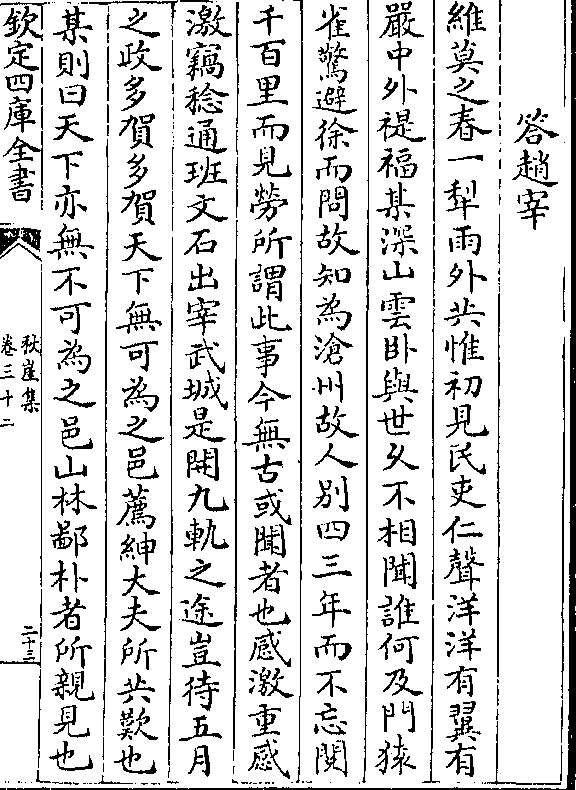 答趙宰
維莫之春一犁雨外共惟初見民吏仁聲洋洋有翼有
嚴中外禔福某深山雲卧與世久不相聞誰何及門猿
雀驚避徐而問故知為滄州故人别四三年而不忘閲
千百里而見勞所謂此事今無古或聞者也感激重感
激竊稔通班文石出宰武城是開九軌之途豈待五月
之政多賀多賀天下無可為之邑薦紳大夫所共歎也
某則曰天下亦無不可為之邑山林鄙朴者所親見也
欽定四庫全書
秋崖集
卷三十二
二十三